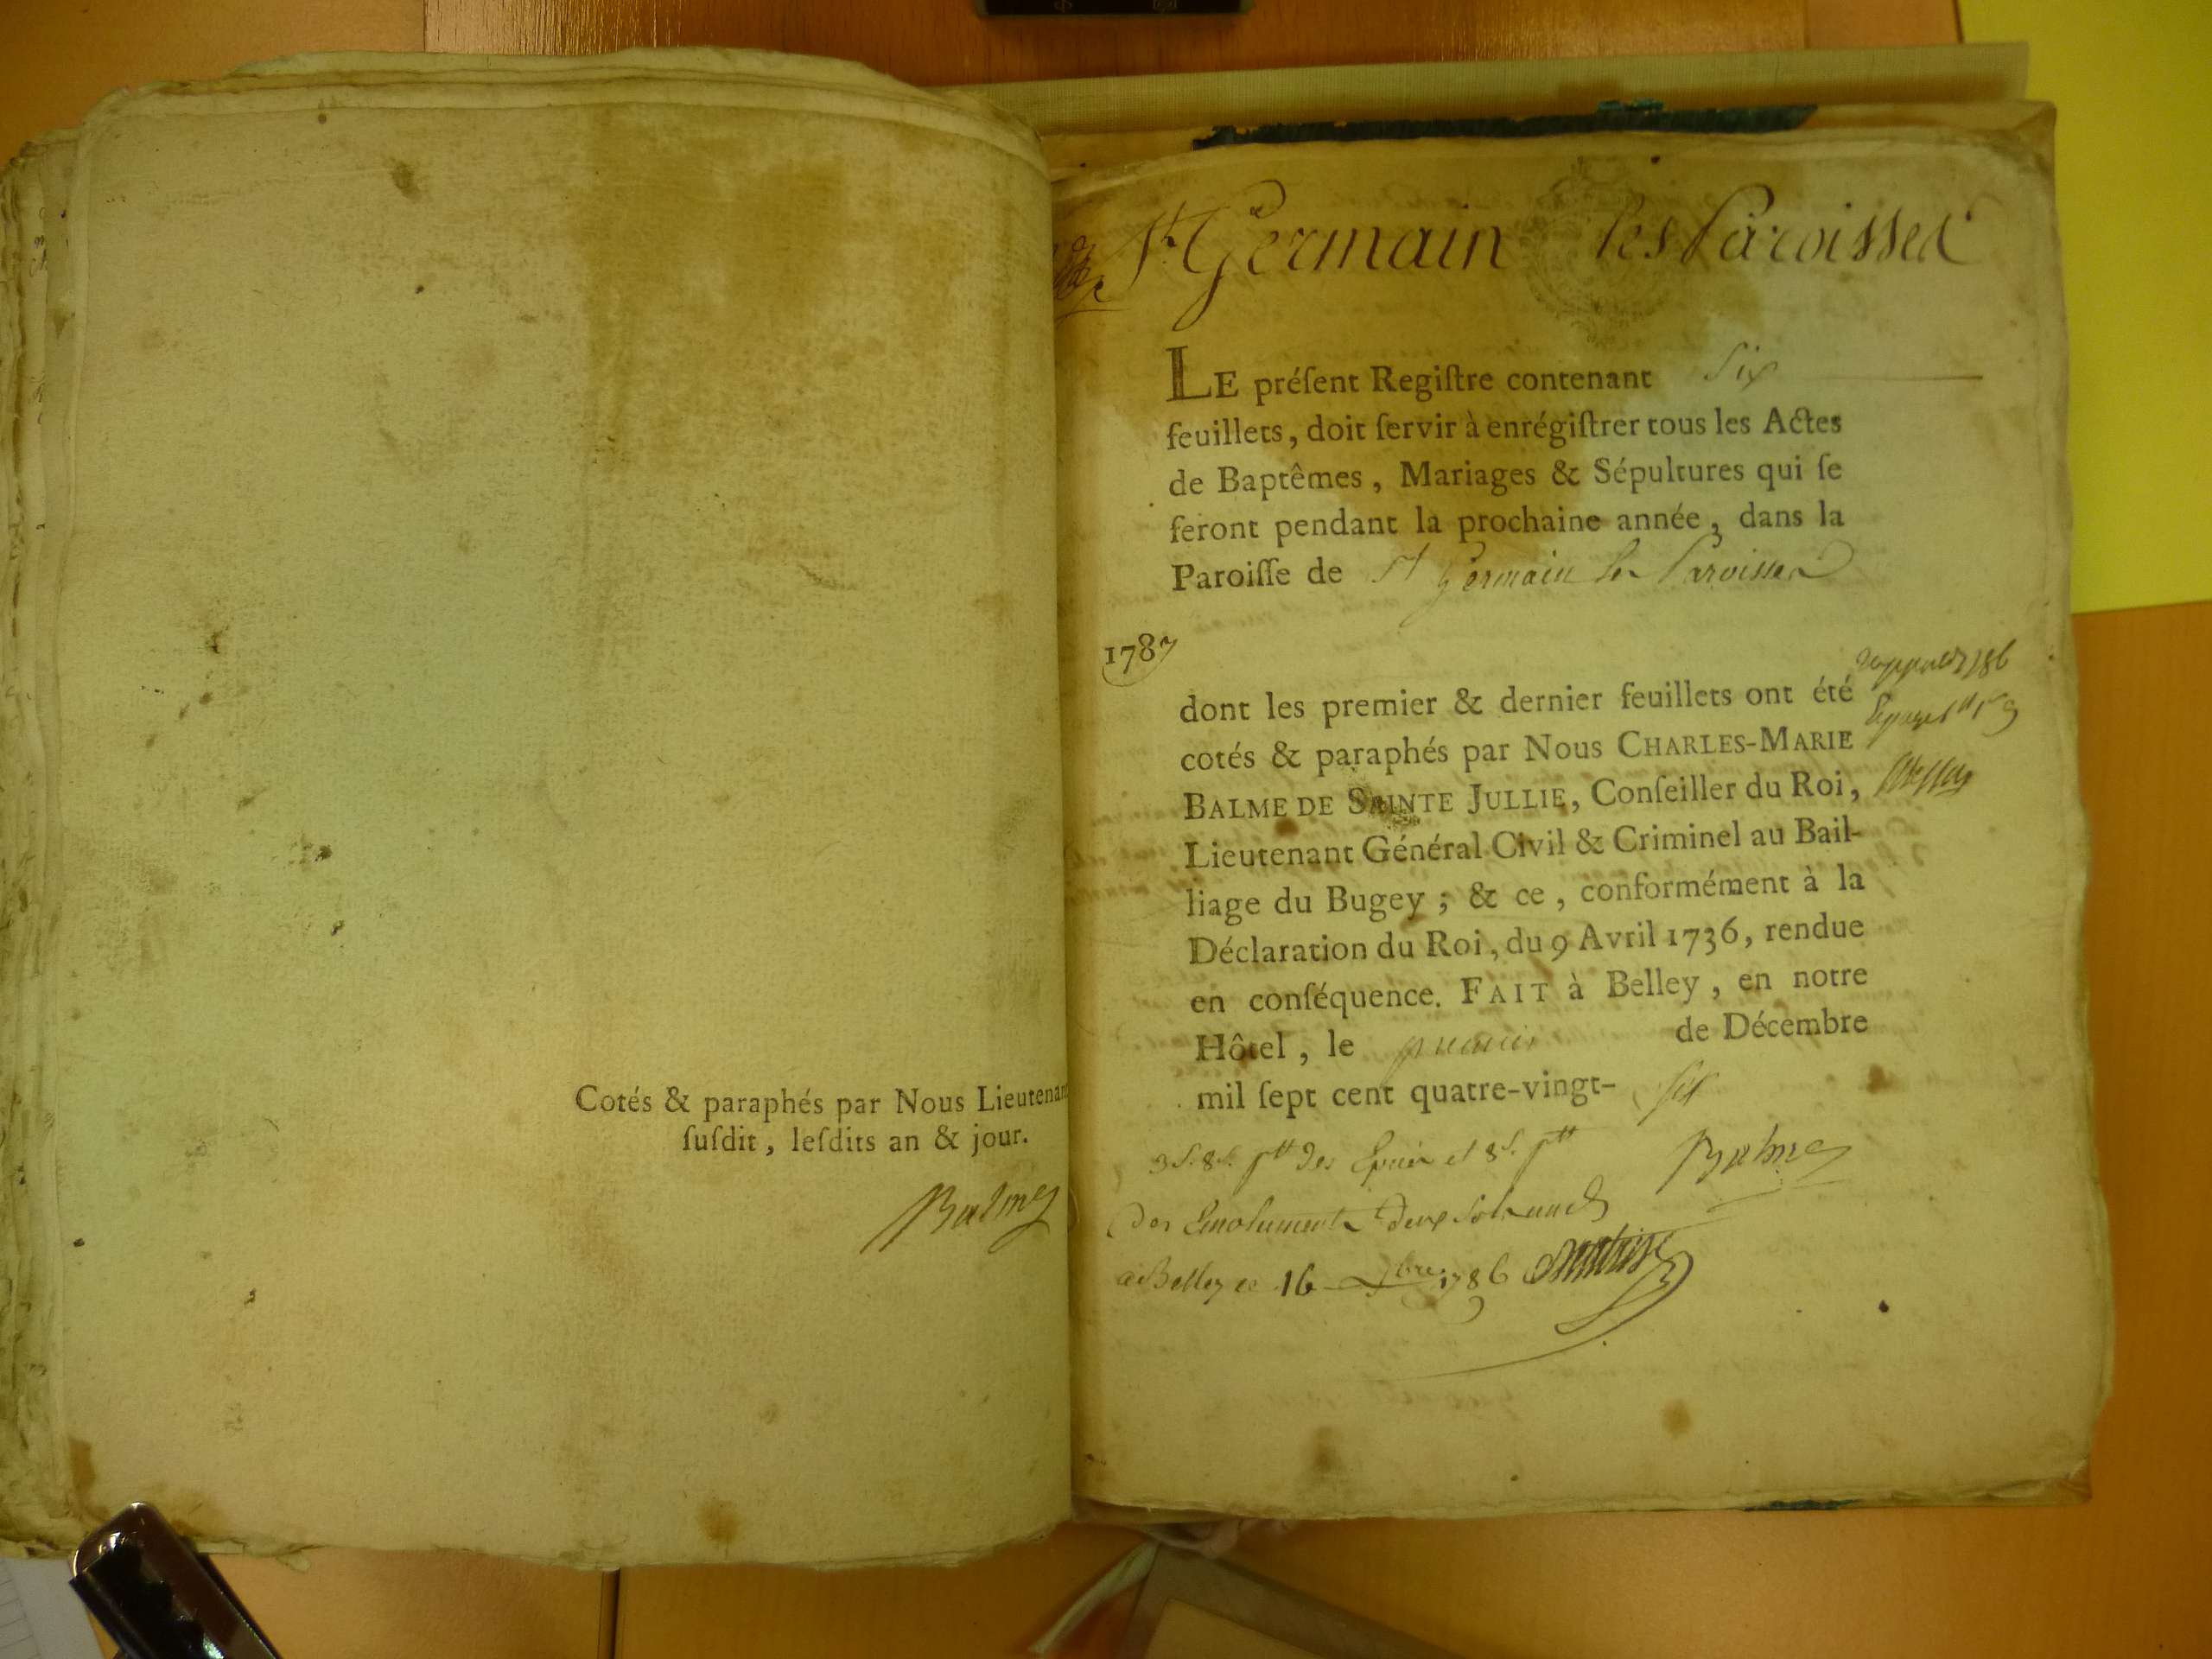 Cotés & paraphés par Nous Lieutenan
ſuſdit, leſdits an & jour.
Balme
St. Germain les Paroisses
LE préſent Regiſtre contenant Six
feuillets, doit ſervir à enrégiſtrer tous les Actes
de Baptêmes, Mariages & Sépultures qui ſe
feront pendant la prochaine année, dans la
Paroiſſe de St Germain les Paroisses
1787
dont les premier & dernier feuillets ont été
cotés & paraphés par Nous CHARLES-MARIE
BALME DE SAINTE JULLIE, Conſeiller du Roi,
Lieutenant Général Civil & Criminel au Bail-
liage du Bugey ; & ce, conformément à la
Déclaration du Roi, du 9 Avril 1736, rendue
en conſéquence. FAIT à Belley, en notre
Hôtel, le premier de Décembre
mil ſept cent quatre-vingt- six
Balme
des Emoluments deux sols
a Belley ce 16 bre 1786